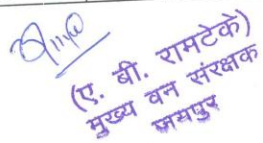 (ए. बी. रामटेके)
मुख्य वन संरक्षक
जयपुर